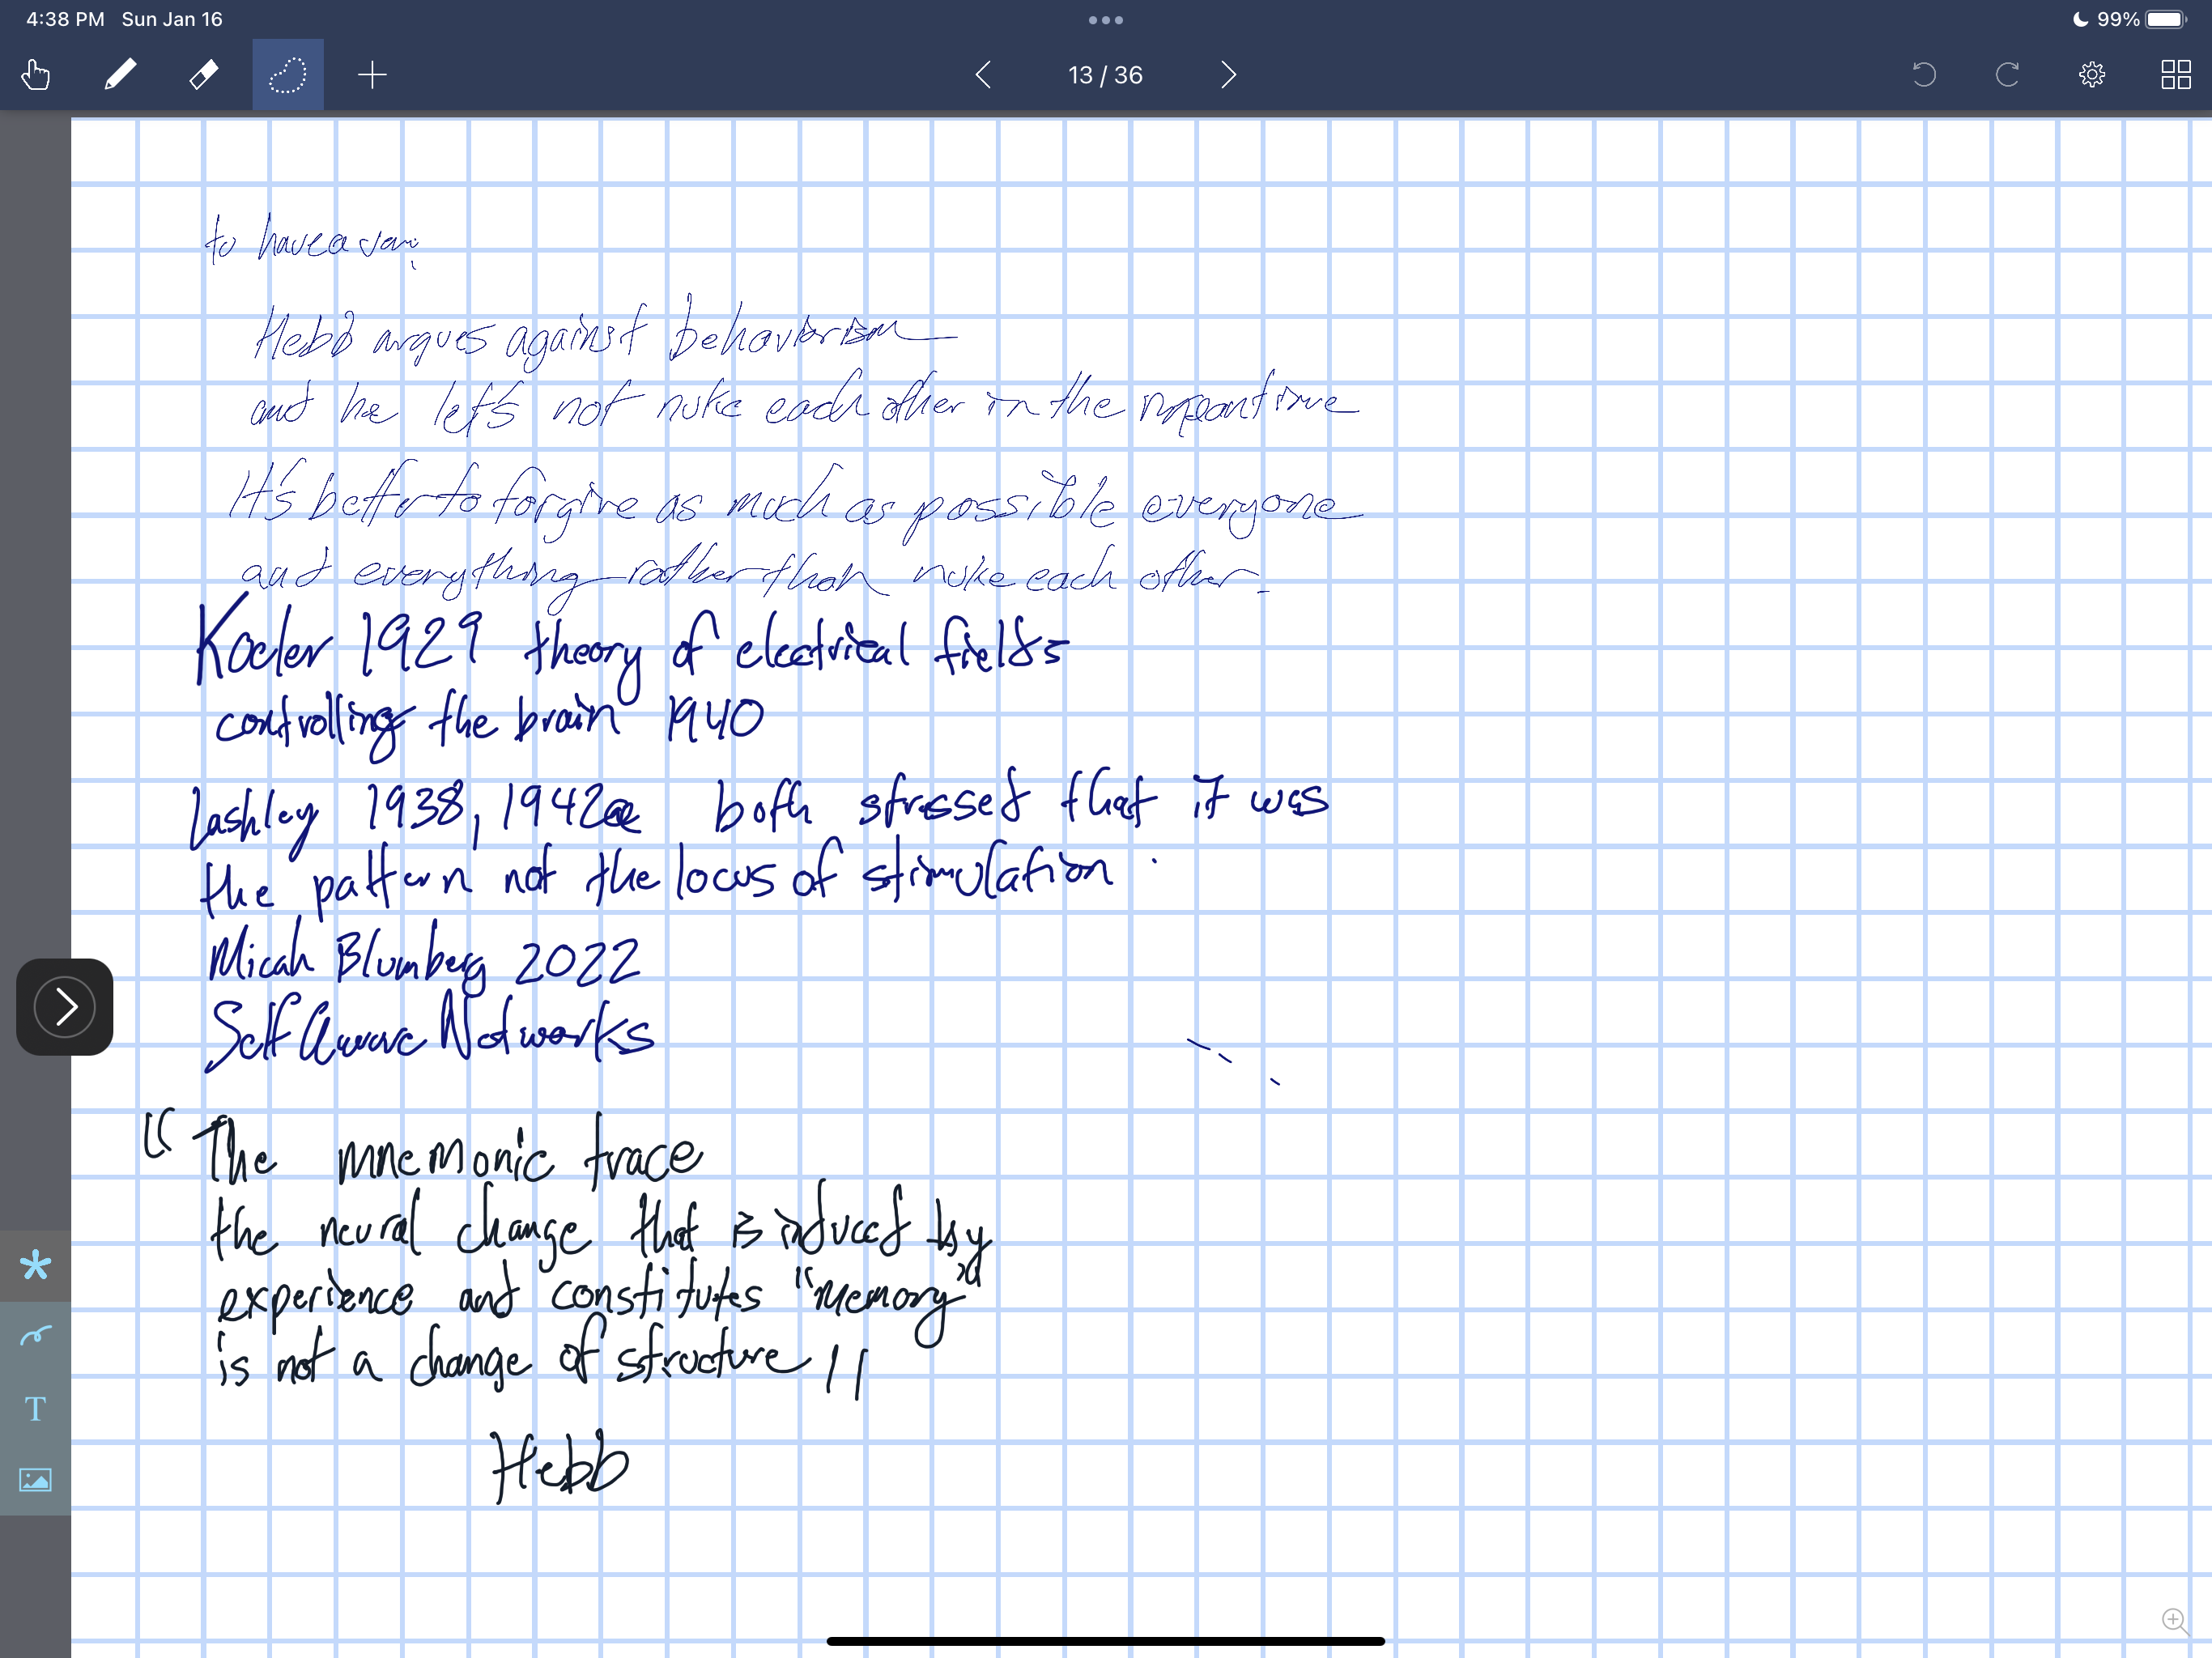 4:38 PM Sun Jan 16
99%
13 / 36
to have a
Hebb argues against behaviorism
and he let's not nuke each other in the meantime
It's better to forgive as much as possible everyone
and everything rather than nuke each other.
Koeler 1929 theory of electrical fields
controlling the brain 1940
Lashley 1938, 1942a both stressed that it was
the pattern not the locus of stimulation.
Micah Blumberg 2022
Self Aware Networks
"The mnemonic trace
the neural change that is induced by
experience and constitutes "memory"
is not a change of structure"
Hebb
T